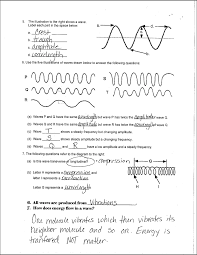 5. The illustration to the right shows a wave.
Label each part in the spaces below.
crest
trough
amplitude
wavelength
6. Use the five illustrations of waves drawn below to answer the following questions:
P
Q
R
S
T
(a) Waves P and Q have the same wavelength but wave P has twice the amplitude of wave Q.
(b) Waves
(c) Wave T shows a steady frequency but changing amplitude.
(d) Wave S shows steady amplitude but a changing frequency.
(e) Waves Q and R have a low amplitude and a steady frequency.
7. The following questions refer to the diagram to the right.
(a) Is the wave transverse or longitudinal?
compression
Letter represents a
Letter B represents a wavelength
1. All waves are produced from Vibrations
2. How does energy flow in a wave?
One molecule vibrates which then vibrates its
neighbor molecule and so on. Energy is
transferred NOT matter.